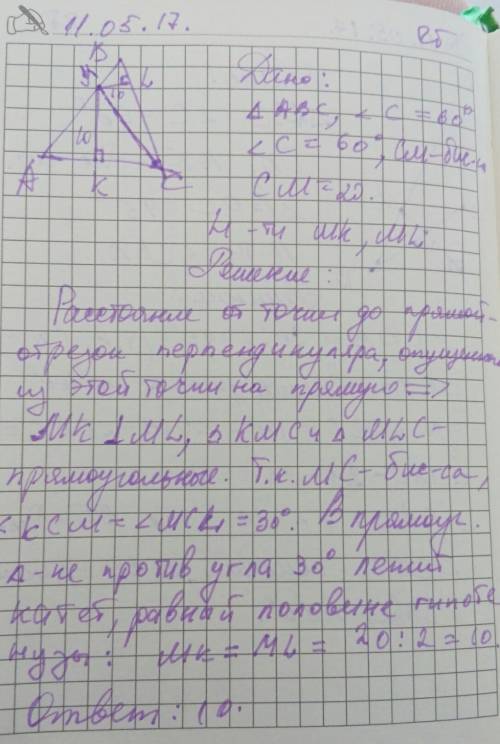 11.05.17.
Дано:
В
M
L
10
10
А
К
С
Δ ABC, ∠ C = 60°
∠C = 60°, CM - бис-а
CM = 20.
Н-ти МК, ML
Решение:
Расстояние от точки до прямой -
отрезок перпендикуляра, опущенный
из этой точки на прямую =>
МК ⊥ ML, Δ КМС и Δ MLC -
прямоугольные. Т.к. МС - бис-са,
∠КСМ = ∠MCL = 30°. В прямоуг.
Δ-ке против угла 30° лежит
катет, равный половине гипоте
нузы: МК = ML = 20:2 = 10.
Ответ: 10.